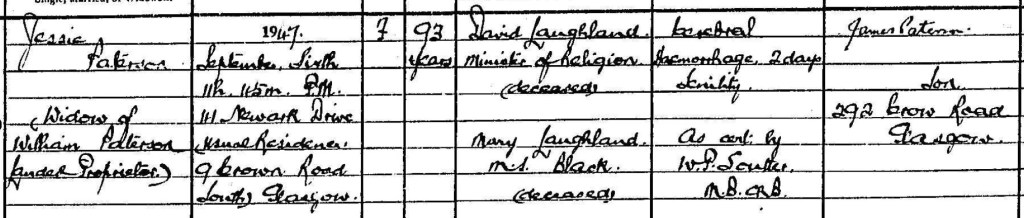 Single, Married, or Widowed.
Jessie
Paterson
(Widow of
William Paterson
Proprietor)
1947.
September, Sixth
11h. 45m. P.M.
Newark Drive
(Usual Residence
9 Brown Road
South) Glasgow.
F
93
years
David Laughland
Minister of Religion
(deceased)
Mary Laughland
m.s. Black.
(deceased)
Cerebral
Haemorrhage, 2 days
Senility.
As cert. by
M.B. Ch.B.
James Paterson.
Son
292 Crow Road
Glasgow.